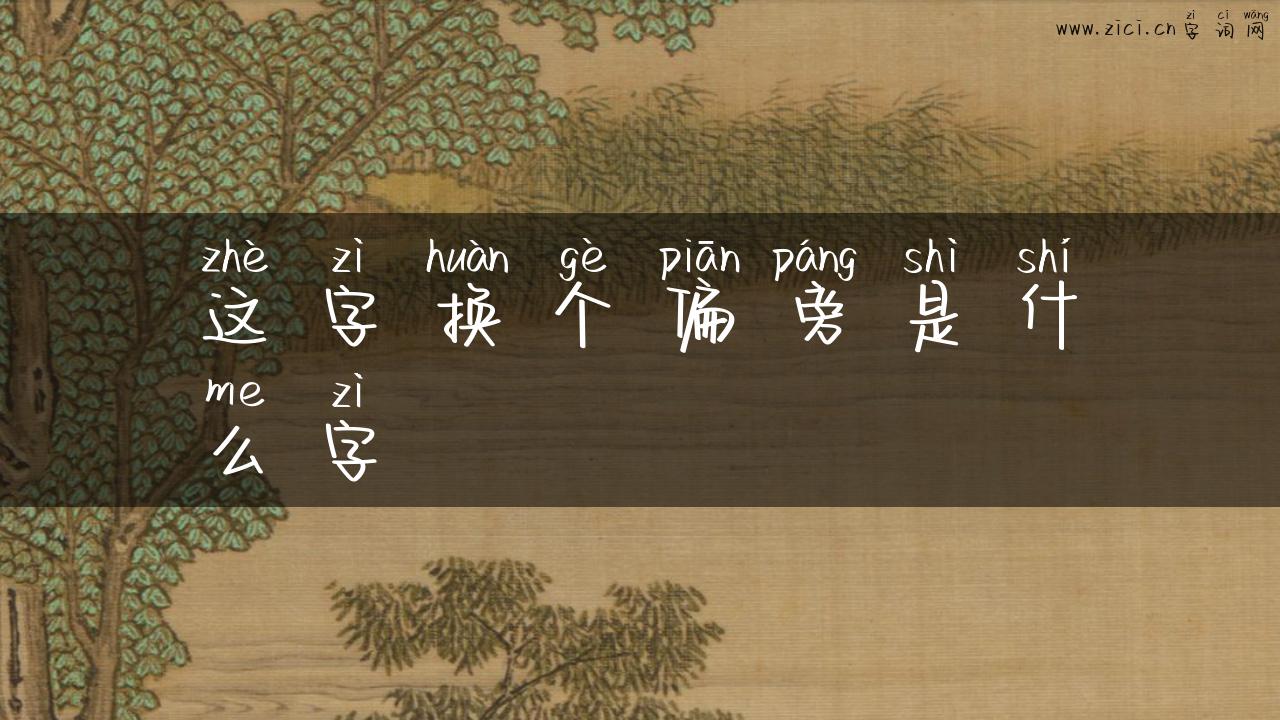 zì cí wǎng
www.zici.cn 字词网
zhè zì huàn gè piān páng shì shí
这字换个偏旁是什
me zì
么字